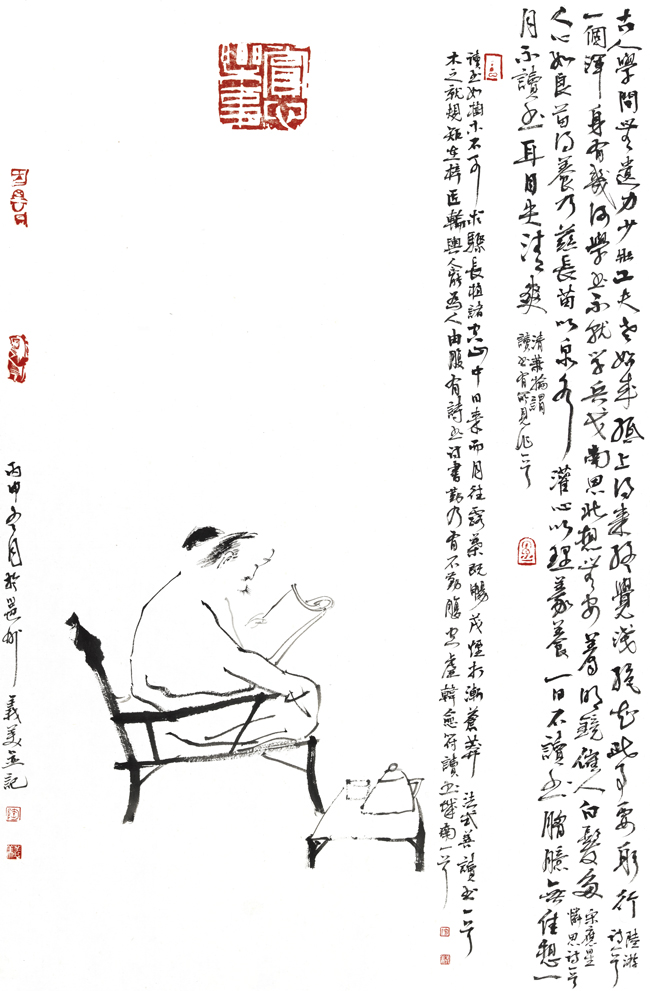 古人學問無遺力少壯工夫老始成紙上得來終覺淺絕知此事要躬行
陸游
詩一首
一個渾身有幾何學書不就學兵戈南思北想無安著明鏡催人白髮多
宋應星
憐愚詩一首
人心如良苗得養乃滋長苗以泉水灌心以理義養一日不讀書胸臆無佳想一
月不讀書耳目失清爽
清蕭掄謂
讀書有所見作一首
讀書如樹木不可求驟長植諸空山中日來而月往露葉既暢茂煙打漸蒼莽 法式善讀書一首
木之就規矩在梓匠輪輿人能爲人由腹有詩書詩書勤乃有不勤腹空虛韓愈符讀書城南一首
丙申冬月於邕州 義美並記